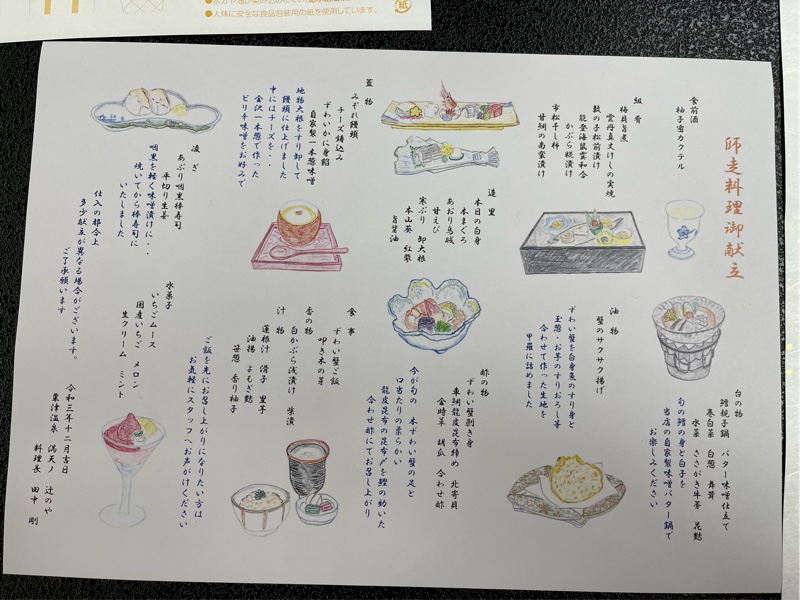 ●人体に安全な食品包装用の紙を使用しています。
紙
師走料理御献立
食前酒
柚子蜜カクテル
組肴
梅貝旨煮
雲丹真丈けしの実焼
数の子松前漬け
能登海鼠霙和合
かぶら糀漬け
市松干し柿
甘鯛の南蛮漬け
造里
本日の白身
本まぐろ
あおり烏賊
甘えび
寒ぶり 卸大根
本山葵 紅蓼
旨醤油
蓋物
みぞれ饅頭
チーズ鋳込み
ずわいかに身餡
自家製一本葱味噌
地物大根をすり卸して
饅頭に仕上げました
中にはチーズを・・
金沢一本葱で作った
ピリ辛味噌をお好みで
凌ぎ
あぶり咽黒棒寿司
平切り生姜
咽黒を軽く味噌漬けに・・
焼いてから棒寿司に
いたしました
仕入の都合上
多少献立が異なる場合がございます。
ご了承願います
台の物
鱈親子鍋 バター味噌仕立て
巻白菜 白葱 舞茸
水菜 ささがき牛蒡 花麩
旬の鱈の身と白子を
当店の自家製味噌バター鍋で
お楽しみください
油物
蟹のサクサク揚げ
ずわい蟹を白身魚のすり身と
玉葱・お芋のすりおろし等
合わせて作った生地を
甲羅に詰めました
酢の物
ずわい蟹剥き身
車鯛龍皮昆布締め 北寄貝
金時草 胡瓜 合わせ酢
今が旬の 本ずわい蟹の足と
口当たりの柔らかい
龍皮昆布の昆布〆を鰹の効いた
合わせ酢にてお召し上がり
食事
ずわい蟹ご飯
叩き木の芽
香の物
白かぶら浅漬け 柴漬
汁物
蓮根汁 滑子 里芋
油揚 よもぎ麩
笹葱 香り柚子
ご飯を先にお召し上がりになりたい方は
お気軽にスタッフへお声がけください
水菓子
いちごムース
国産いちご メロン
生クリーム ミント
令和三年十二月吉日
粟津温泉 満天ノ 辻のや
料理長 田中 剛